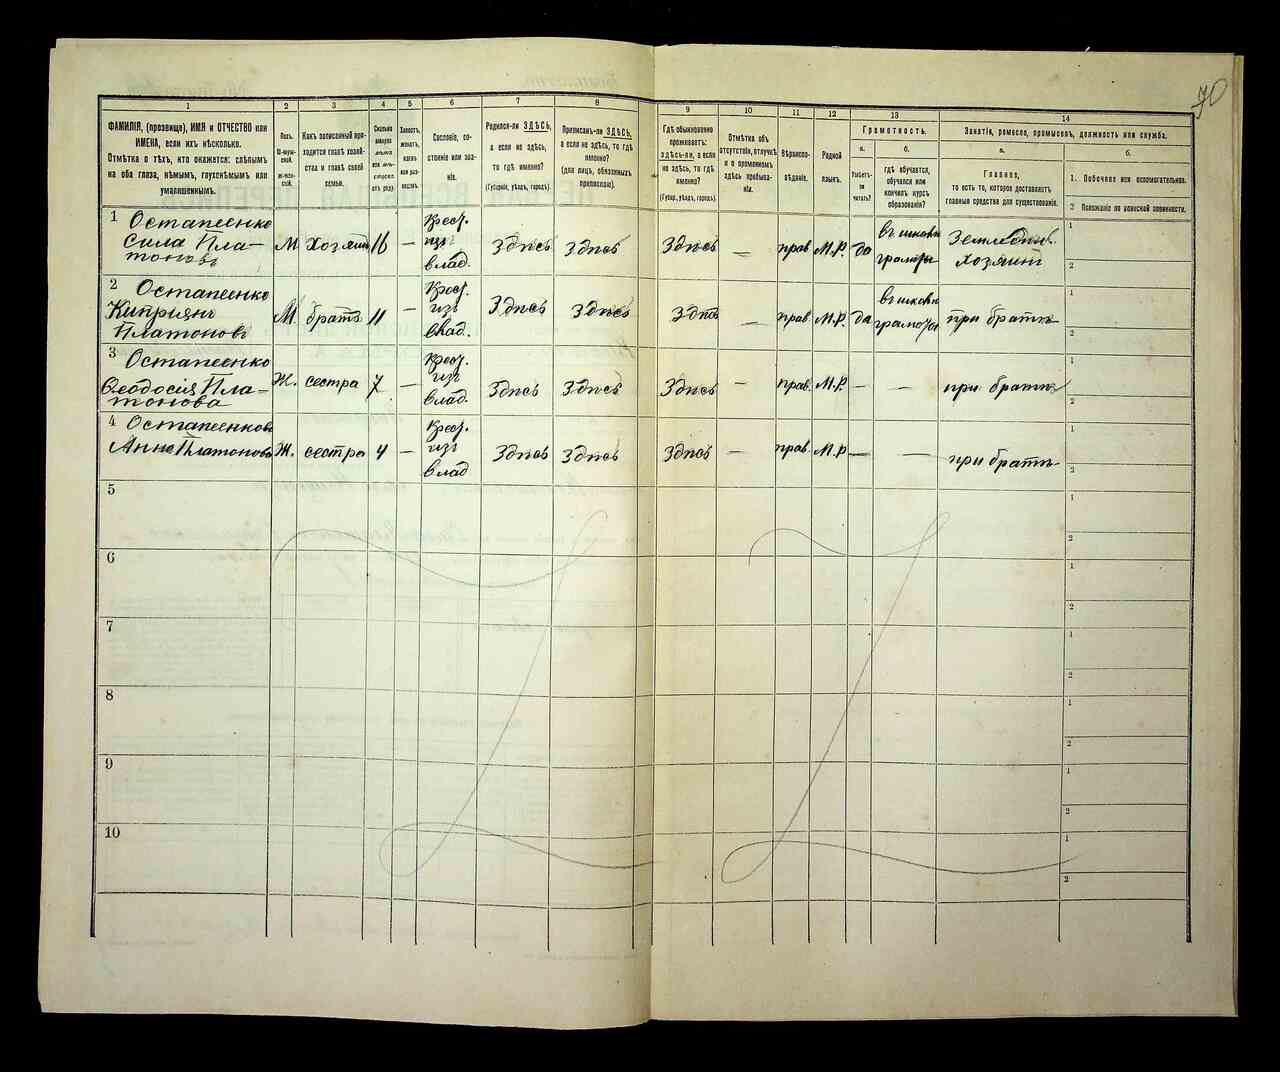 70
1
2
3
4
5
6
7
8
9
10
11
12
13
14
ФАМИЛІЯ, (прозвище), ИМЯ и ОТЧЕСТВО или
ИМЕНА, если ихъ нѣсколько.
Отмѣтка о тѣхъ, кто окажется: слѣпымъ
на оба глаза, нѣмымъ, глухонѣмымъ или
умалишеннымъ.
Полъ.
М-муж-
ской.
Ж-жен-
скій.
Какъ записанный при-
ходится главѣ хозяй-
ства и главѣ своей
семьи.
Сколько
минуло
лѣтъ
или мѣ-
сяцевъ
отъ роду.
Холостъ,
женатъ,
вдовъ
или раз-
веденъ.
Сословіе, со-
стояніе или зва-
ніе.
Родился-ли ЗДѢСЬ,
а если не здѣсь,
то гдѣ именно?
(Губернія, уѣздъ, городъ).
Приписанъ-ли ЗДѢСЬ,
а если не здѣсь, то гдѣ
именно?
(для лицъ, обязанныхъ
припискою).
Гдѣ обыкновенно
проживаетъ:
здѣсь-ли, а если
не здѣсь, то гдѣ
именно?
(Губер., уѣздъ, городъ).
Отмѣтка объ
отсутствіи, отлучкѣ
и о временномъ
здѣсь пребыва-
ніи.
Вѣроиспо-
вѣданіе.
Родной
языкъ.
Грамотность.
а.
Умѣетъ-
ли
читать?
б.
гдѣ обучается,
обучался или
кончилъ курсъ
образованія?
Занятіе, ремесло, промыселъ, должность или служба.
а.
Главное,
то есть то, которое доставляетъ
главныя средства для существованія.
б.
1. Побочное или вспомогательное.
2 Положеніе по воинской повинности.
1 Остапеенко
Сила Пла-
тоновъ
М
Хозяинъ
16
—
Крест.
изъ
влад.
Здѣсь
Здѣсь
Здѣсь
—
прав
М.Р.
да
въ школѣ
грамоты
Земледѣл.
хозяинъ
1
2
2 Остапеенко
Кипріянъ
Платоновъ
М.
братъ
11
—
Крест.
изъ
влад.
Здѣсь
Здѣсь
Здѣсь
—
прав.
М.Р.
да
въ школѣ
грамоты
при братѣ
1
2
3 Остапеенко
Ѳеодосія Пла-
тонова
Ж.
сестра
7
—
Крест.
изъ
влад.
Здѣсь
Здѣсь
Здѣсь
—
прав.
М.Р.
—
—
при братѣ
1
2
4 Остапеенкова
Анна Платонова
Ж.
сестра
4
—
Крест.
изъ
влад
Здѣсь
Здѣсь
Здѣсь
—
прав.
М.Р.
—
—
при братѣ
1
2
5
1
2
6
1
2
7
1
2
8
1
2
9
1
2
10
1
2